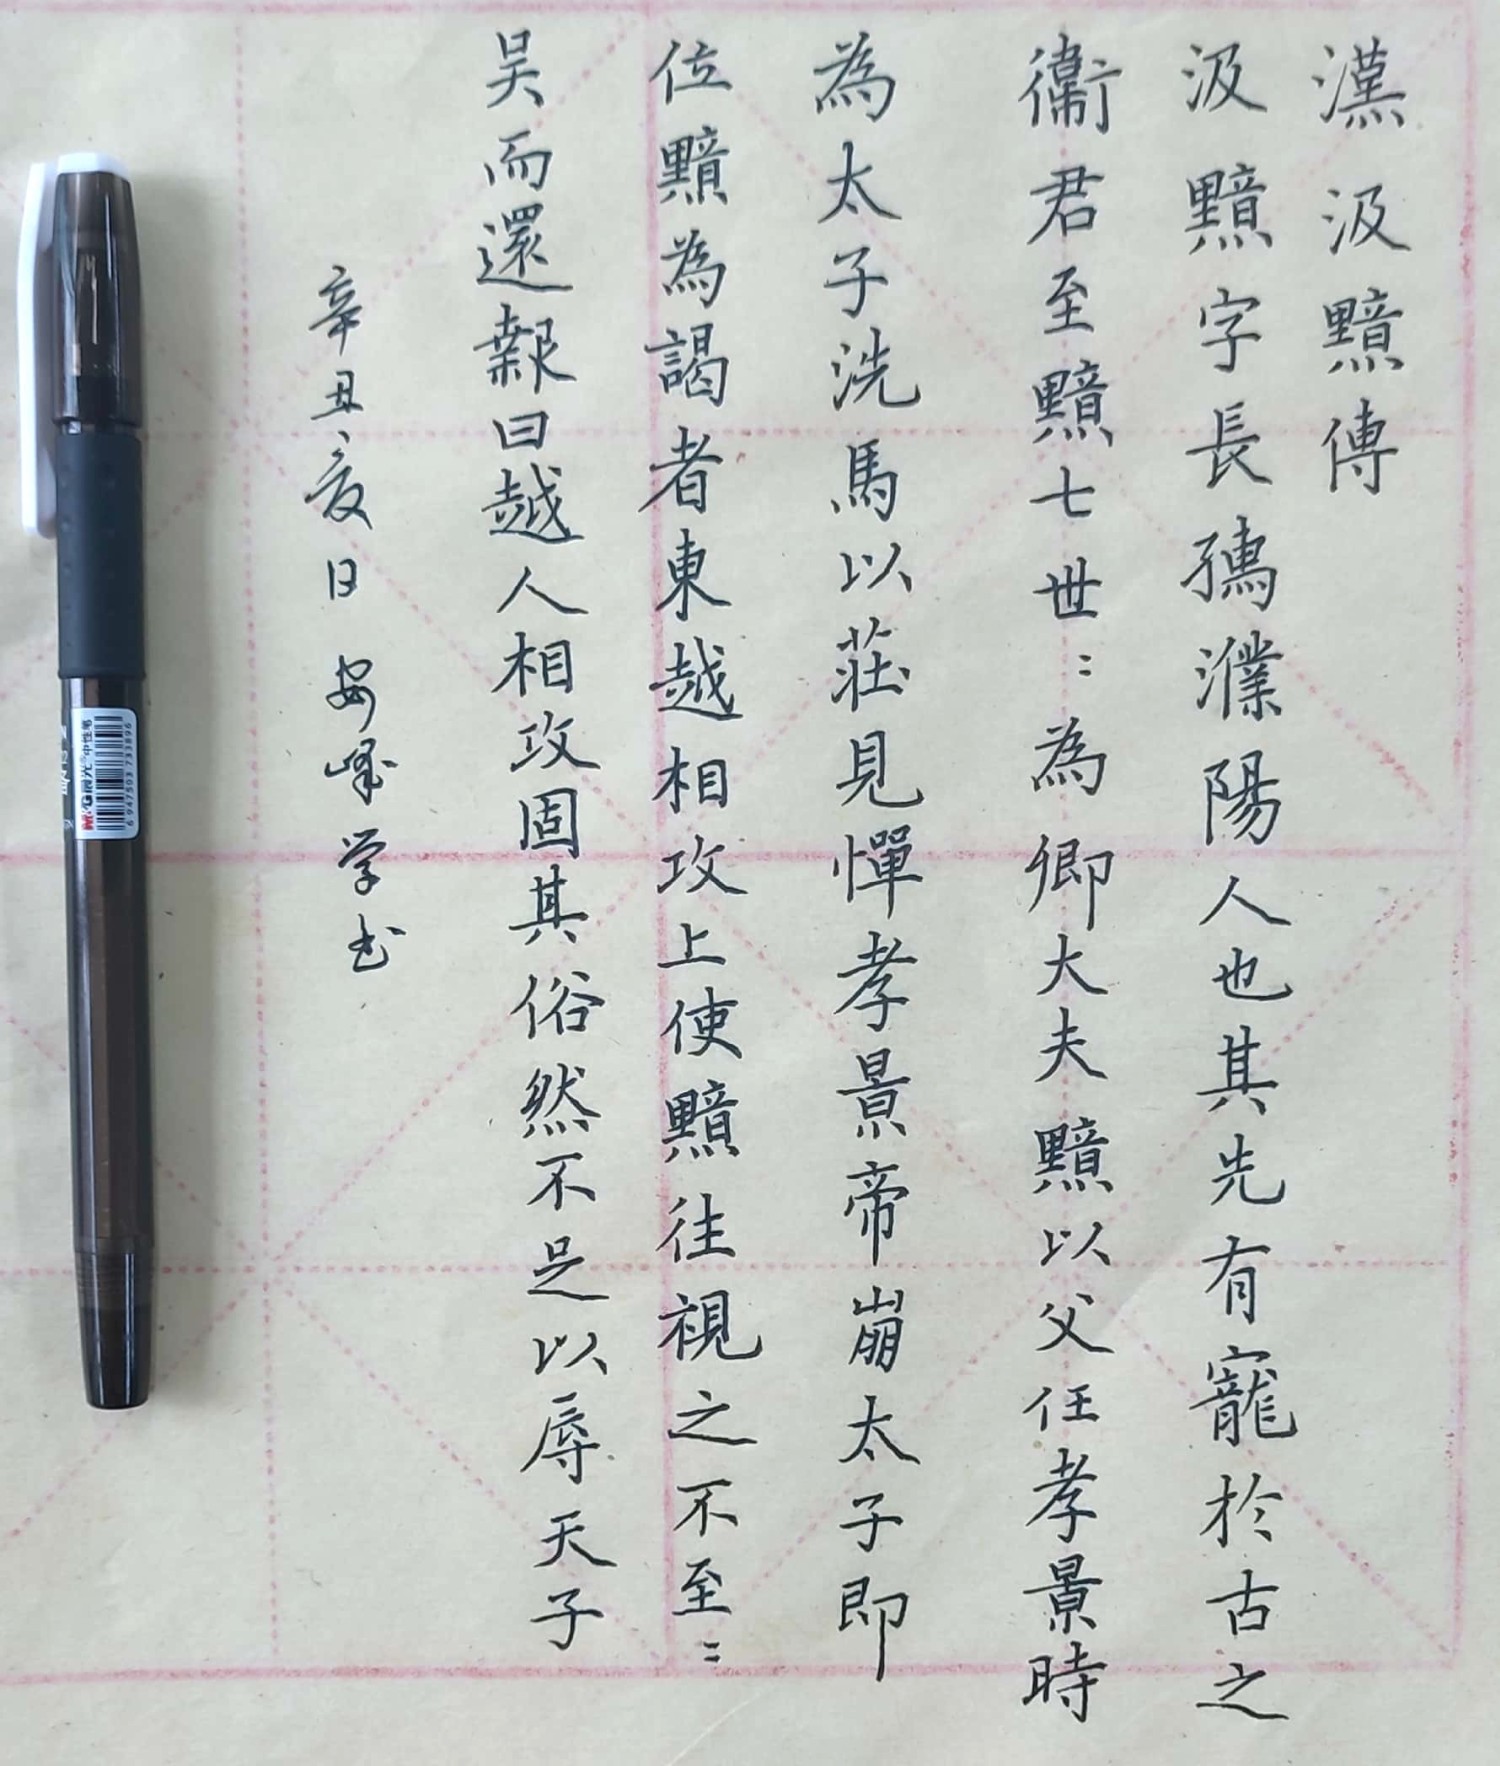 漢汲黯傳
汲黯字長孺濮陽人也其先有寵於古之
衛君至黯七世〻為卿大夫黯以父任孝景時
為太子洗馬以莊見憚孝景帝崩太子即
位黯為謁者東越相攻上使黯往視之不至〻
吴而還報曰越人相攻固其俗然不足以辱天子
辛丑夏日安峰学书
M&G晨光 中性笔
6 947503 733896